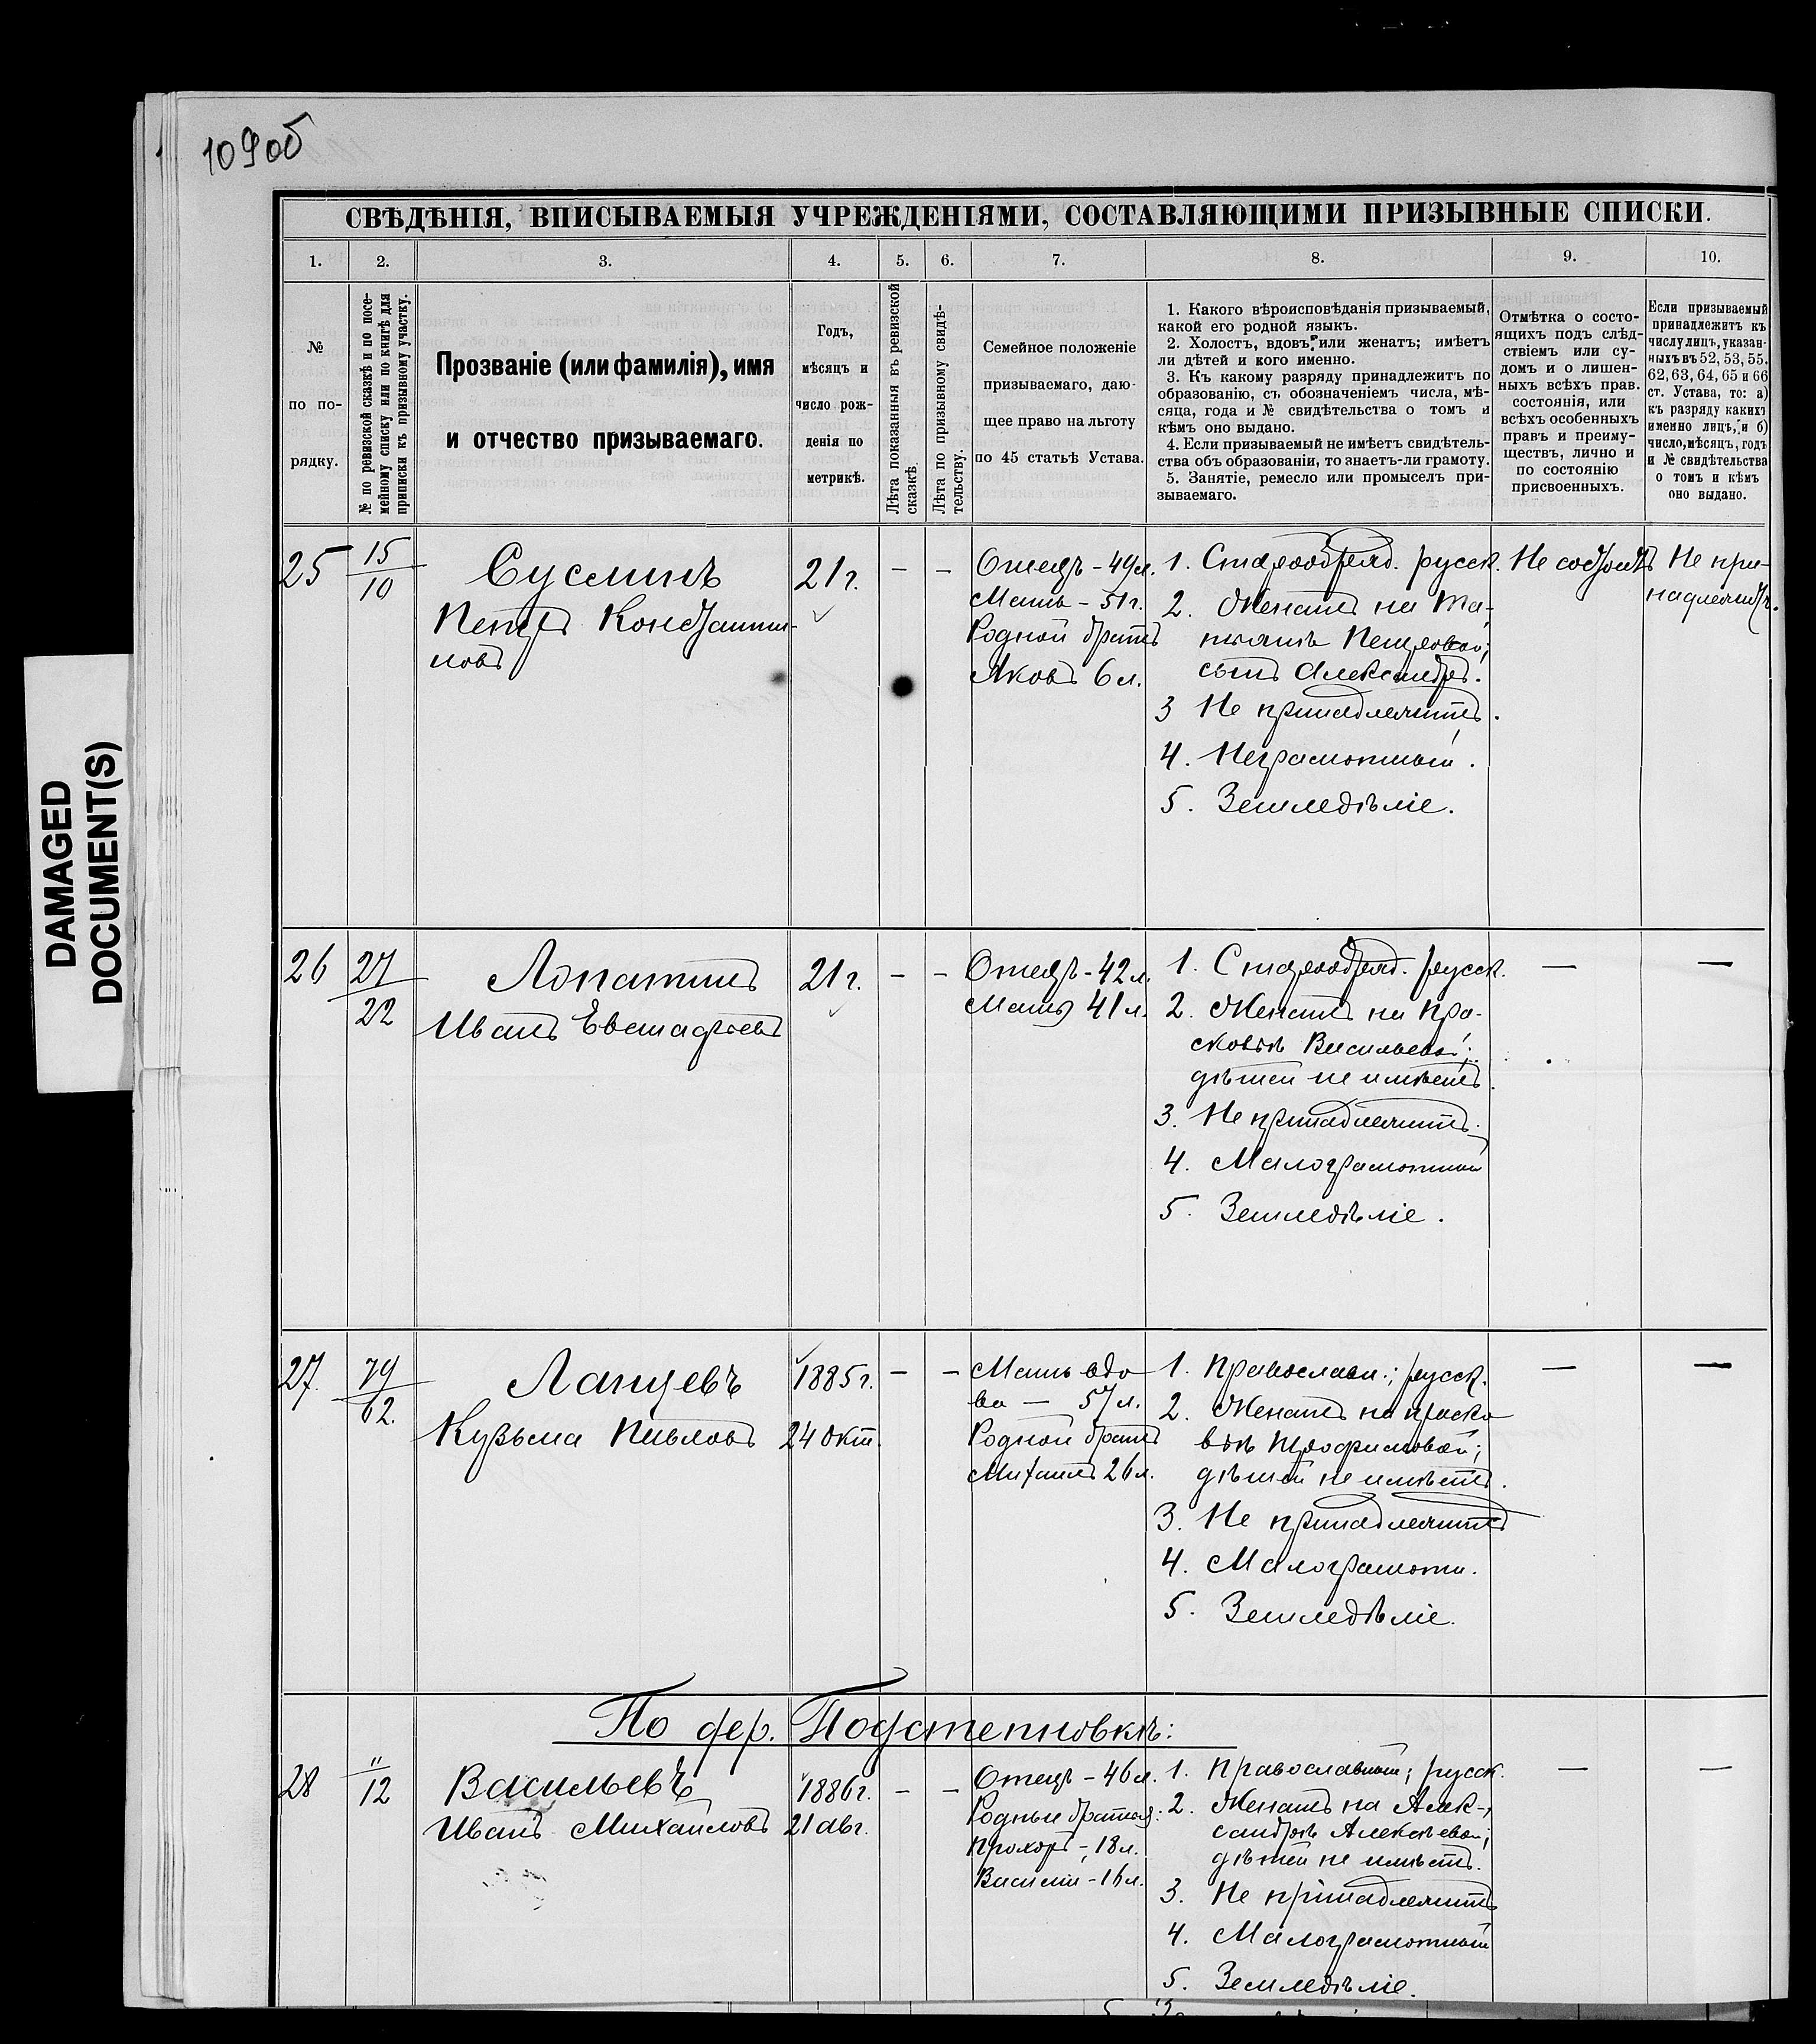 109 об
DAMAGED
DOCUMENT(S)
СВѢДѢНІЯ, ВПИСЫВАЕМЫЯ УЧРЕЖДЕНІЯМИ, СОСТАВЛЯЮЩИМИ ПРИЗЫВНЫЕ СПИСКИ.
1. 2. 3. 4. 5. 6. 7. 8. 9. 10.
№
по по-
рядку.
№ по ревизской сказкѣ и по посе-
мейному списку или по книгѣ для
приписки къ призывному участку.
Прозваніе (или фамилія), имя
и отчество призываемаго.
Годъ,
мѣсяцъ и
число рож-
денія по
метрикѣ.
Лѣта показанныя въ ревизской
сказкѣ.
Лѣта по призывному свидѣ-
тельству.
Семейное положеніе
призываемаго, даю-
щее право на льготу
по 45 статьѣ Устава.
1. Какого вѣроисповѣданія призываемый,
какой его родной языкъ.
2. Холостъ, вдовъ, или женатъ; имѣетъ
ли дѣтей и кого именно.
3. Къ какому разряду принадлежитъ по
образованію, съ обозначеніемъ числа, мѣ-
сяца, года и № свидѣтельства о томъ и
кѣмъ оно выдано.
4. Если призываемый не имѣетъ свидѣтель-
ства объ образованіи, то знаетъ-ли грамоту.
5. Занятіе, ремесло или промыселъ при-
зываемаго.
Отмѣтка о состо-
ящихъ подъ слѣд-
ствіемъ или су-
домъ и о лишен-
ныхъ всѣхъ прав.
состоянія, или
всѣхъ особенныхъ
правъ и преиму-
ществъ, лично и
по состоянію
присвоенныхъ.
Если призываемый
принадлежитъ къ
числу лицъ, указан-
ныхъ въ 52, 53, 55,
62, 63, 64, 65 и 66
ст. Устава, то: а)
къ разряду какихъ
именно лицъ, и б)
число, мѣсяцъ, годъ
и № свидѣтельства
о томъ и кѣмъ
оно выдано.
25
15
10
Суслинъ
Петръ Константи-
новъ
21 г.
–
–
Отецъ - 49 л.
Мать - 51 г.
Родной братъ
Яковъ 6 л.
1. Старообряд. русск.
2. Женатъ на Та-
тьянѣ Петровой;
сынъ Александръ.
3 Не принадлежитъ.
4. Неграмотный.
5. Земледѣліе.
Не состоитъ
Не при-
надлежитъ.
26
27
22
Лопатинъ
Иванъ Евстафьевъ
21 г.
–
–
Отецъ - 42 л.
Мать 41 л.
1. Старообряд. русск.
2. Женатъ на Пра-
сковьѣ Васильевой;
дѣтей не имѣетъ.
3. Не принадлежитъ.
4. Малограмотный
5. Земледѣліе.
—
—
27.
79
62.
Лапцевъ
Кузьма Павловъ
1885 г.
24 Окт.
–
–
Мать вдо
ва — 57 л.
Родной братъ
Михаилъ 26 л.
1. Православн.; русск.
2. Женатъ на Праско
вьѣ Трофимовой;
дѣтей не имѣетъ.
3. Не принадлежитъ
4. Малограмотн.
5. Земледѣліе.
—
—
По дер. Подстепновкѣ:
28
"
12
Васильевъ
Иванъ Михайловъ
1886 г.
21 авг.
–
–
Отецъ - 46 л.
Родные братья:
Прохоръ - 18 л.
Василій - 16 л.
1. Православный; русск.
2. Женатъ на Алек-
сандрѣ Алексѣевой;
дѣтей не имѣетъ.
3. Не принадлежитъ
4. Малограмотный
5. Земледѣліе.
—
—